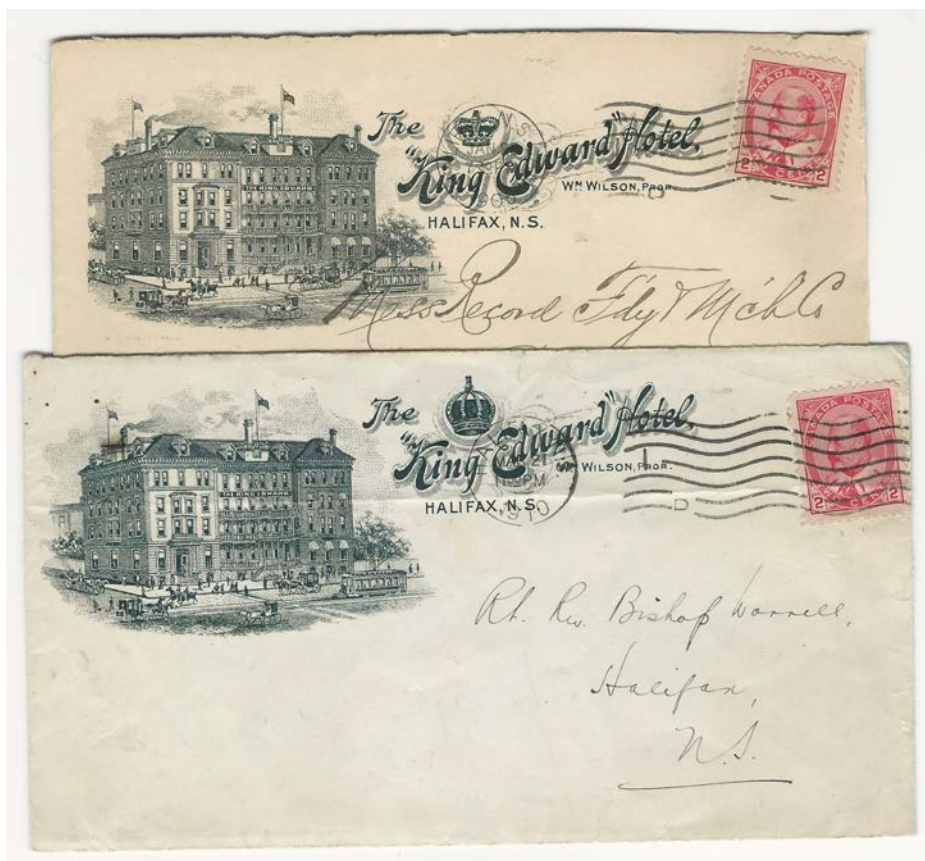 The
"King Edward" Hotel,
Wm Wilson, Prop.
HALIFAX, N.S.
THE KING EDWARD
CANADA POSTAGE
2 CENTS 2
Mess Record Fdy & Mch Co
The
"King Edward" Hotel,
Wm Wilson, Prop.
HALIFAX, N.S.
THE KING EDWARD
PM
1910
D
CANADA POSTAGE
2 CENTS 2
Rt. Rev. Bishop Worrell,
Halifax,
N.S.